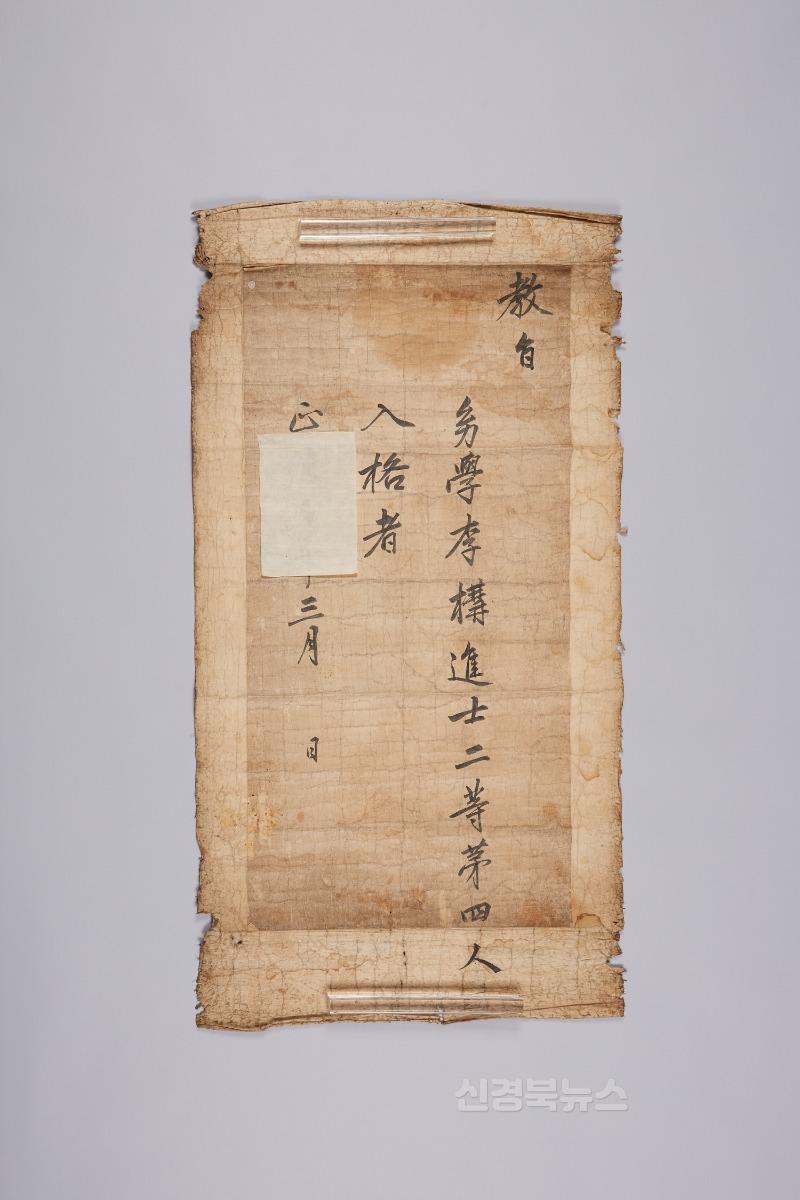 教旨
幼學李構進士二等第四人
入格者
正
三月 日
신경북뉴스